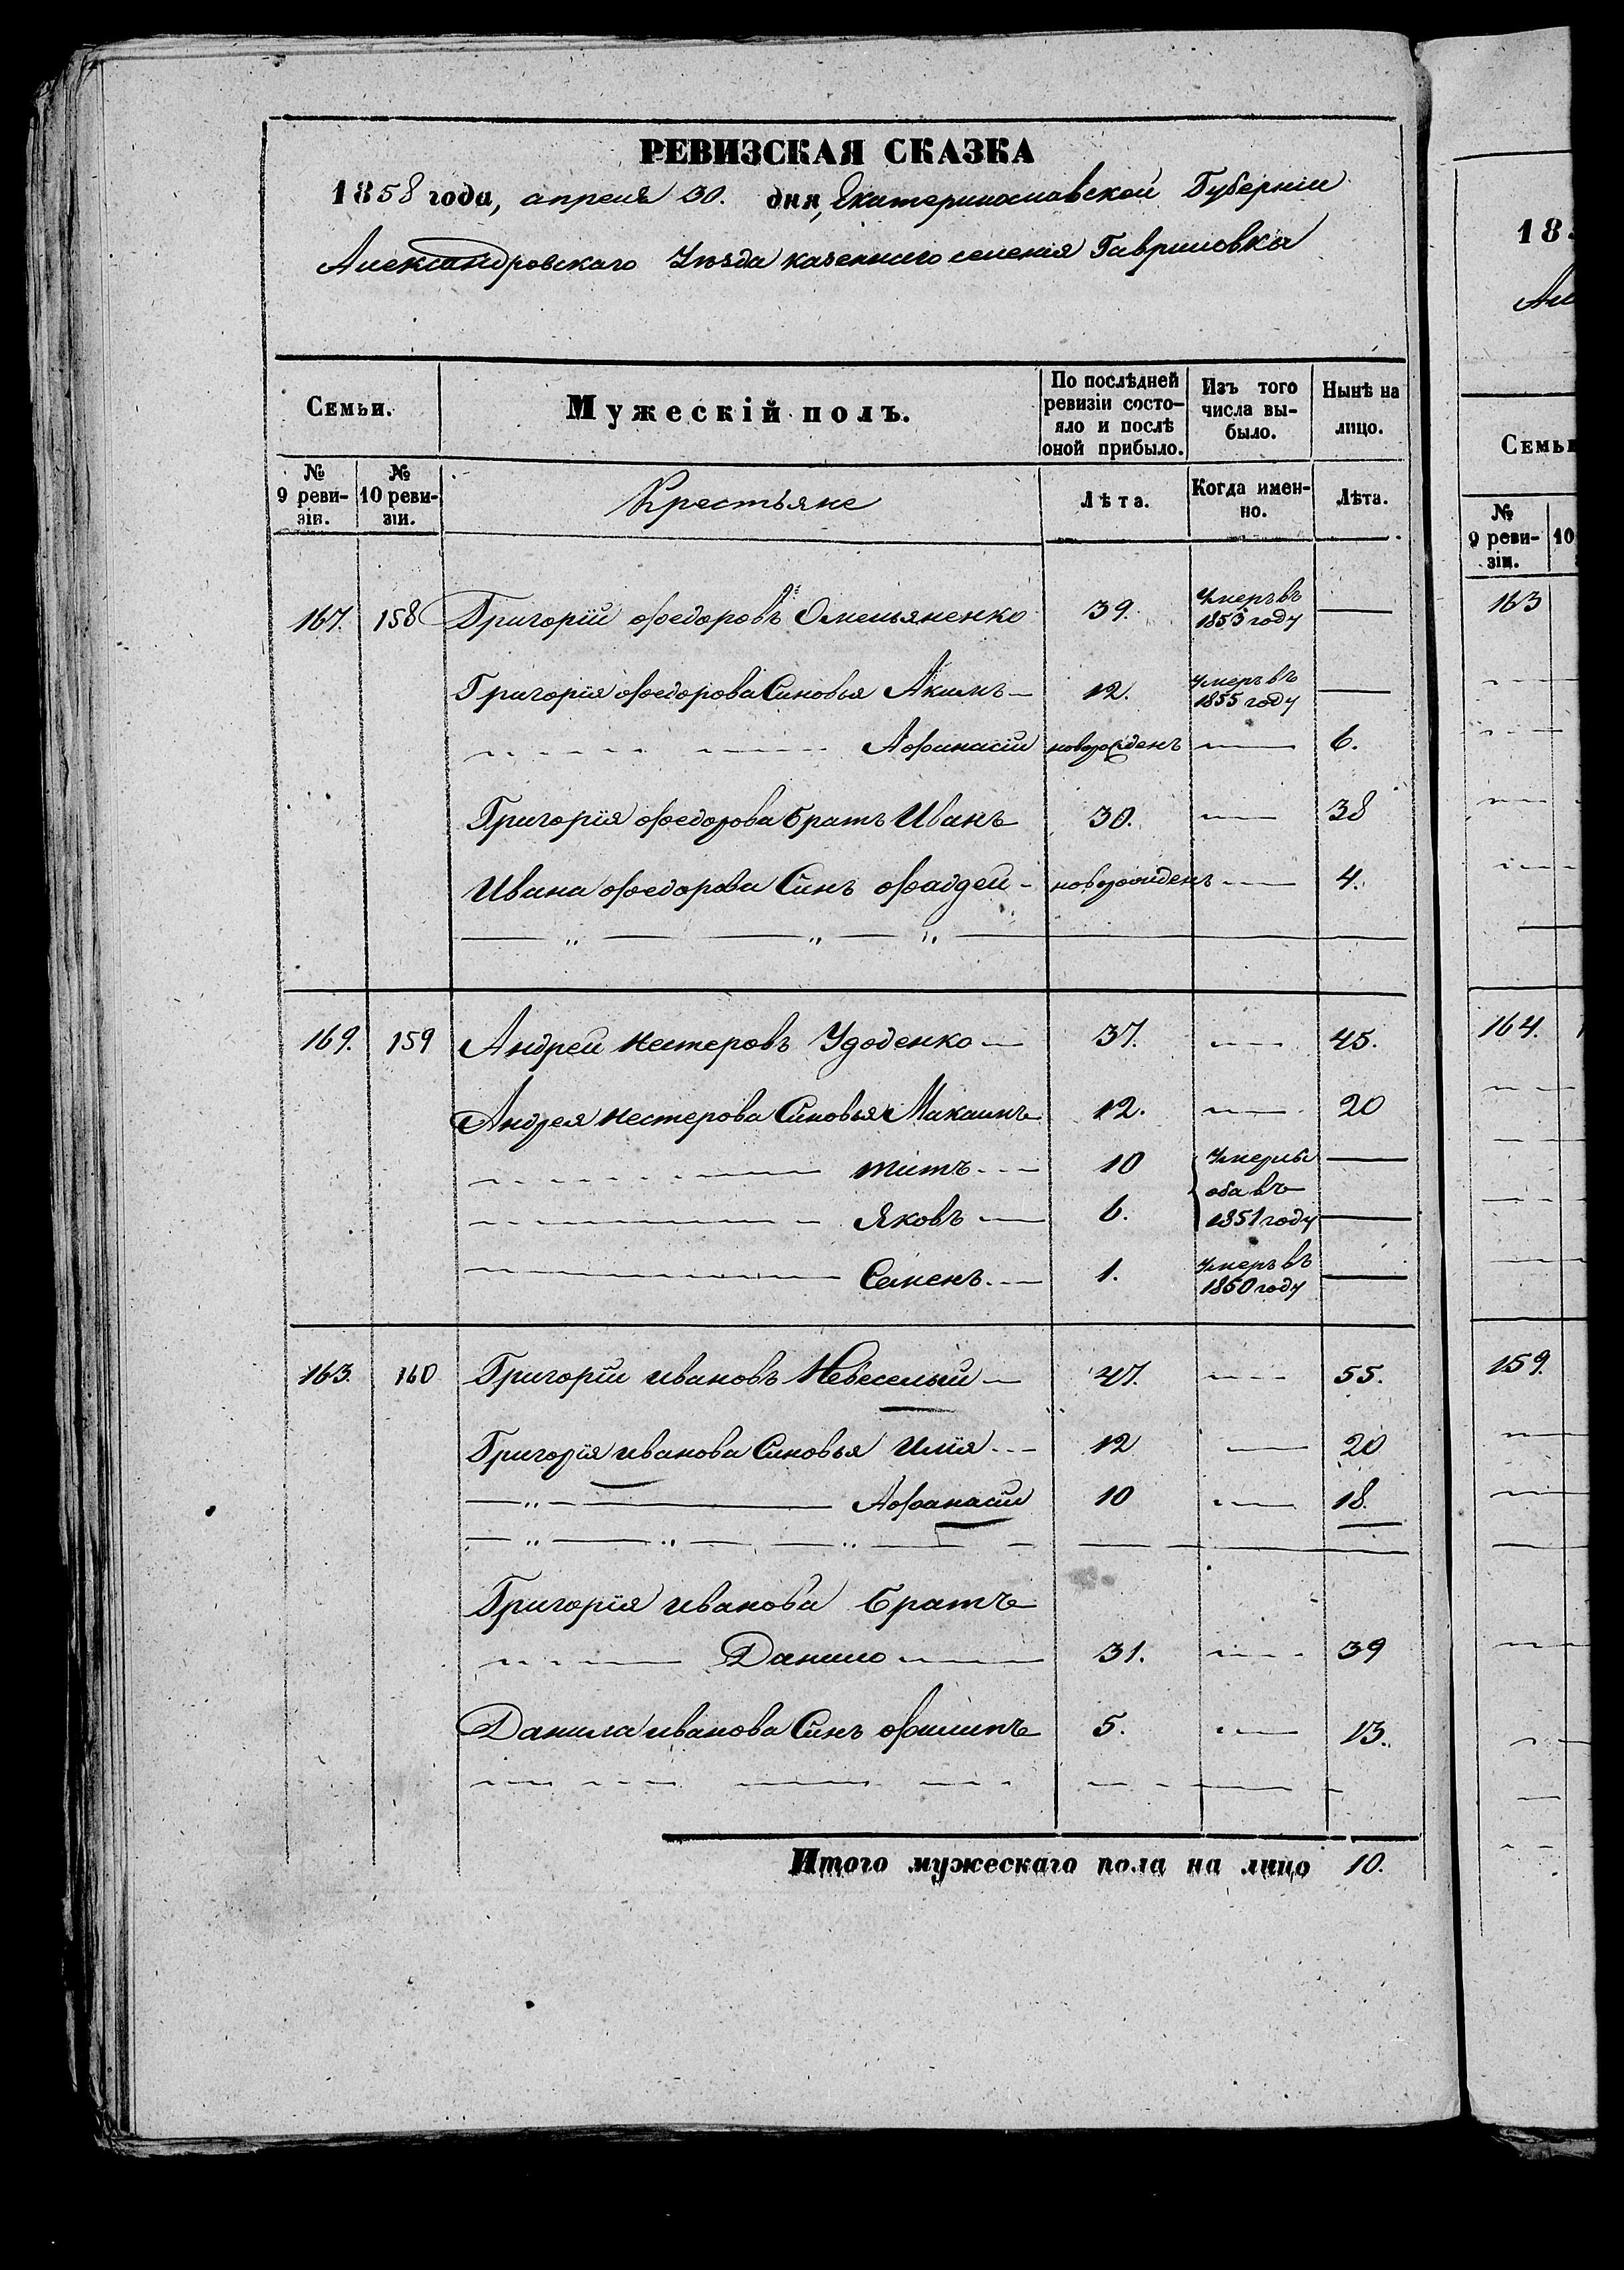 РЕВИЗСКАЯ СКАЗКА
1858 года, апреля 30. дня, Екатеринославской Губерніи
Александровскаго Уѣзда казеннаго селенія Гавриловка
Семьи.
Мужескій полъ.
По послѣдней ревизіи состо-
яло и послѣ
оной прибыло.
Изъ того
числа вы-
было.
Нынѣ на
лицо.
№
9 реви-
зіи.
№
10 реви-
зіи.
Крестьяне
Лѣта.
Когда имен-
но.
Лѣта.
167. 158 Григорій Ѳедоровъ Омельяненко 39. Умеръ въ 1853 году —
Григорія Ѳедорова Синовья Акимъ — 12. Умеръ въ 1855 году —
Афанасій новорожденъ — 6.
Григорія Ѳедорова братъ Иванъ 30. — 38
Ивана Ѳедорова Синъ Фаддей - новорожденъ — 4.
169. 159 Андрей Нестеровъ Удоденко — 37. — 45.
Андрея Нестерова Синовья Макаимъ 12. — 20
Титъ — 10 Умерли —
оба въ
Яковъ — 6. 1851 году —
Семенъ — 1. Умеръ въ 1850 году —
163. 160 Григорій Ивановъ Невеселый — 47. — 55.
Григорія Иванова Синовья Илія — 12 — 20
Афанасій 10 — 18.
Григорія Иванова братъ
Данило — 31. — 39
Данила Иванова Синъ Филипъ 5. — 13.
Итого мужескаго пола на лицо 10.
18
Ал
Семьи
№
9 реви-
зіи.
10
163
164.
159.